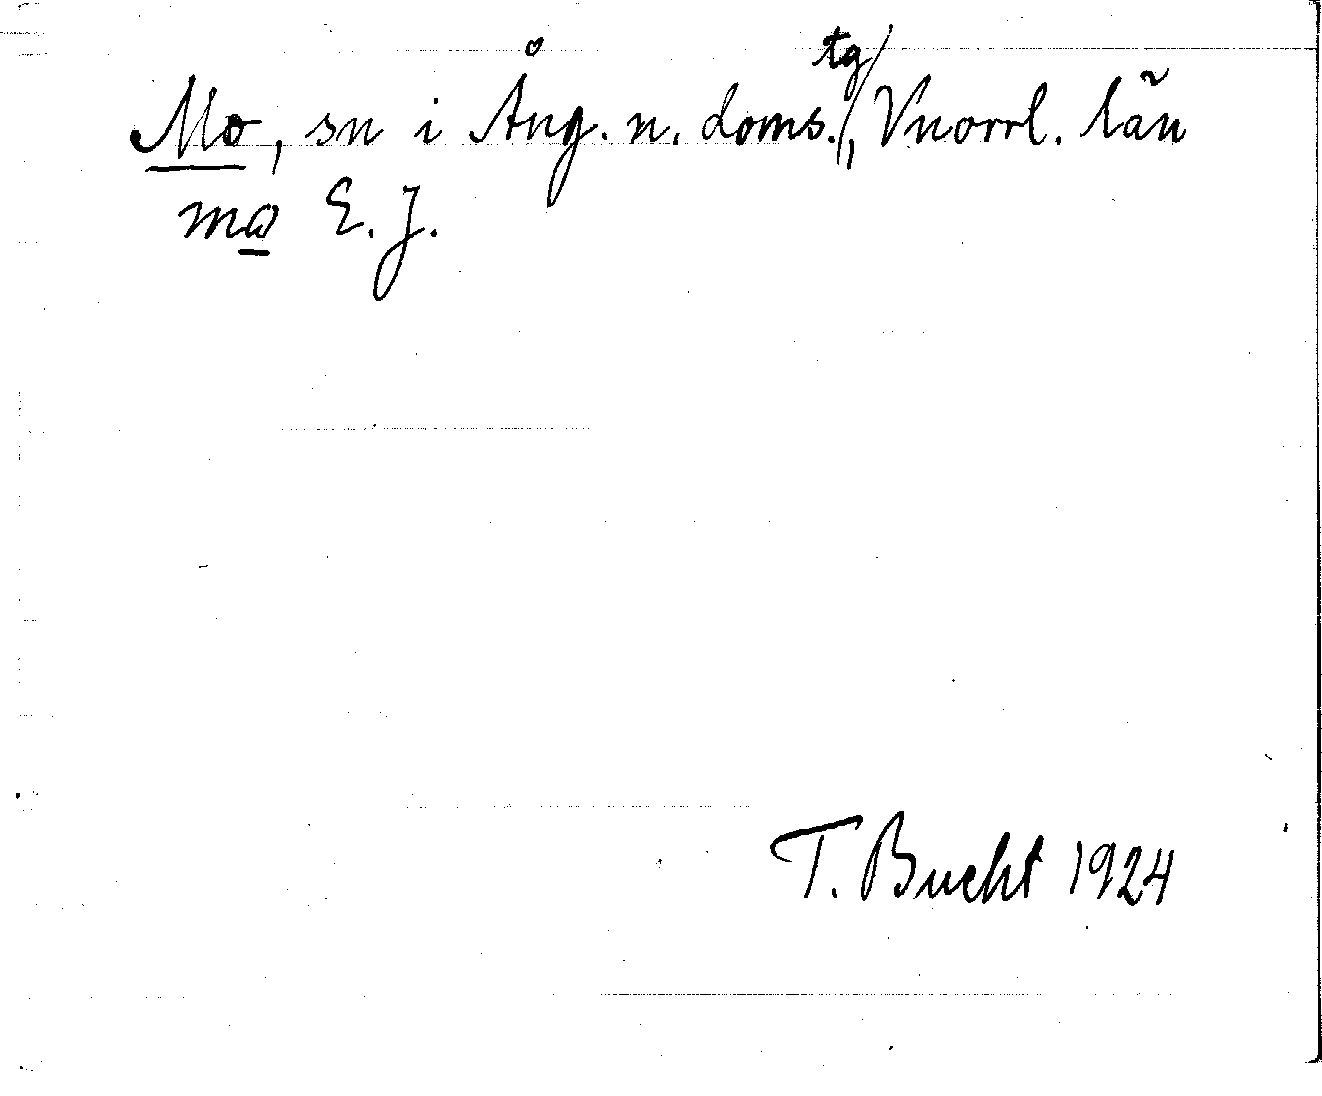 Mo, sn i Ång. n. doms.tg, Vnorrl. län
mo E. J.
T. Bucht 1924